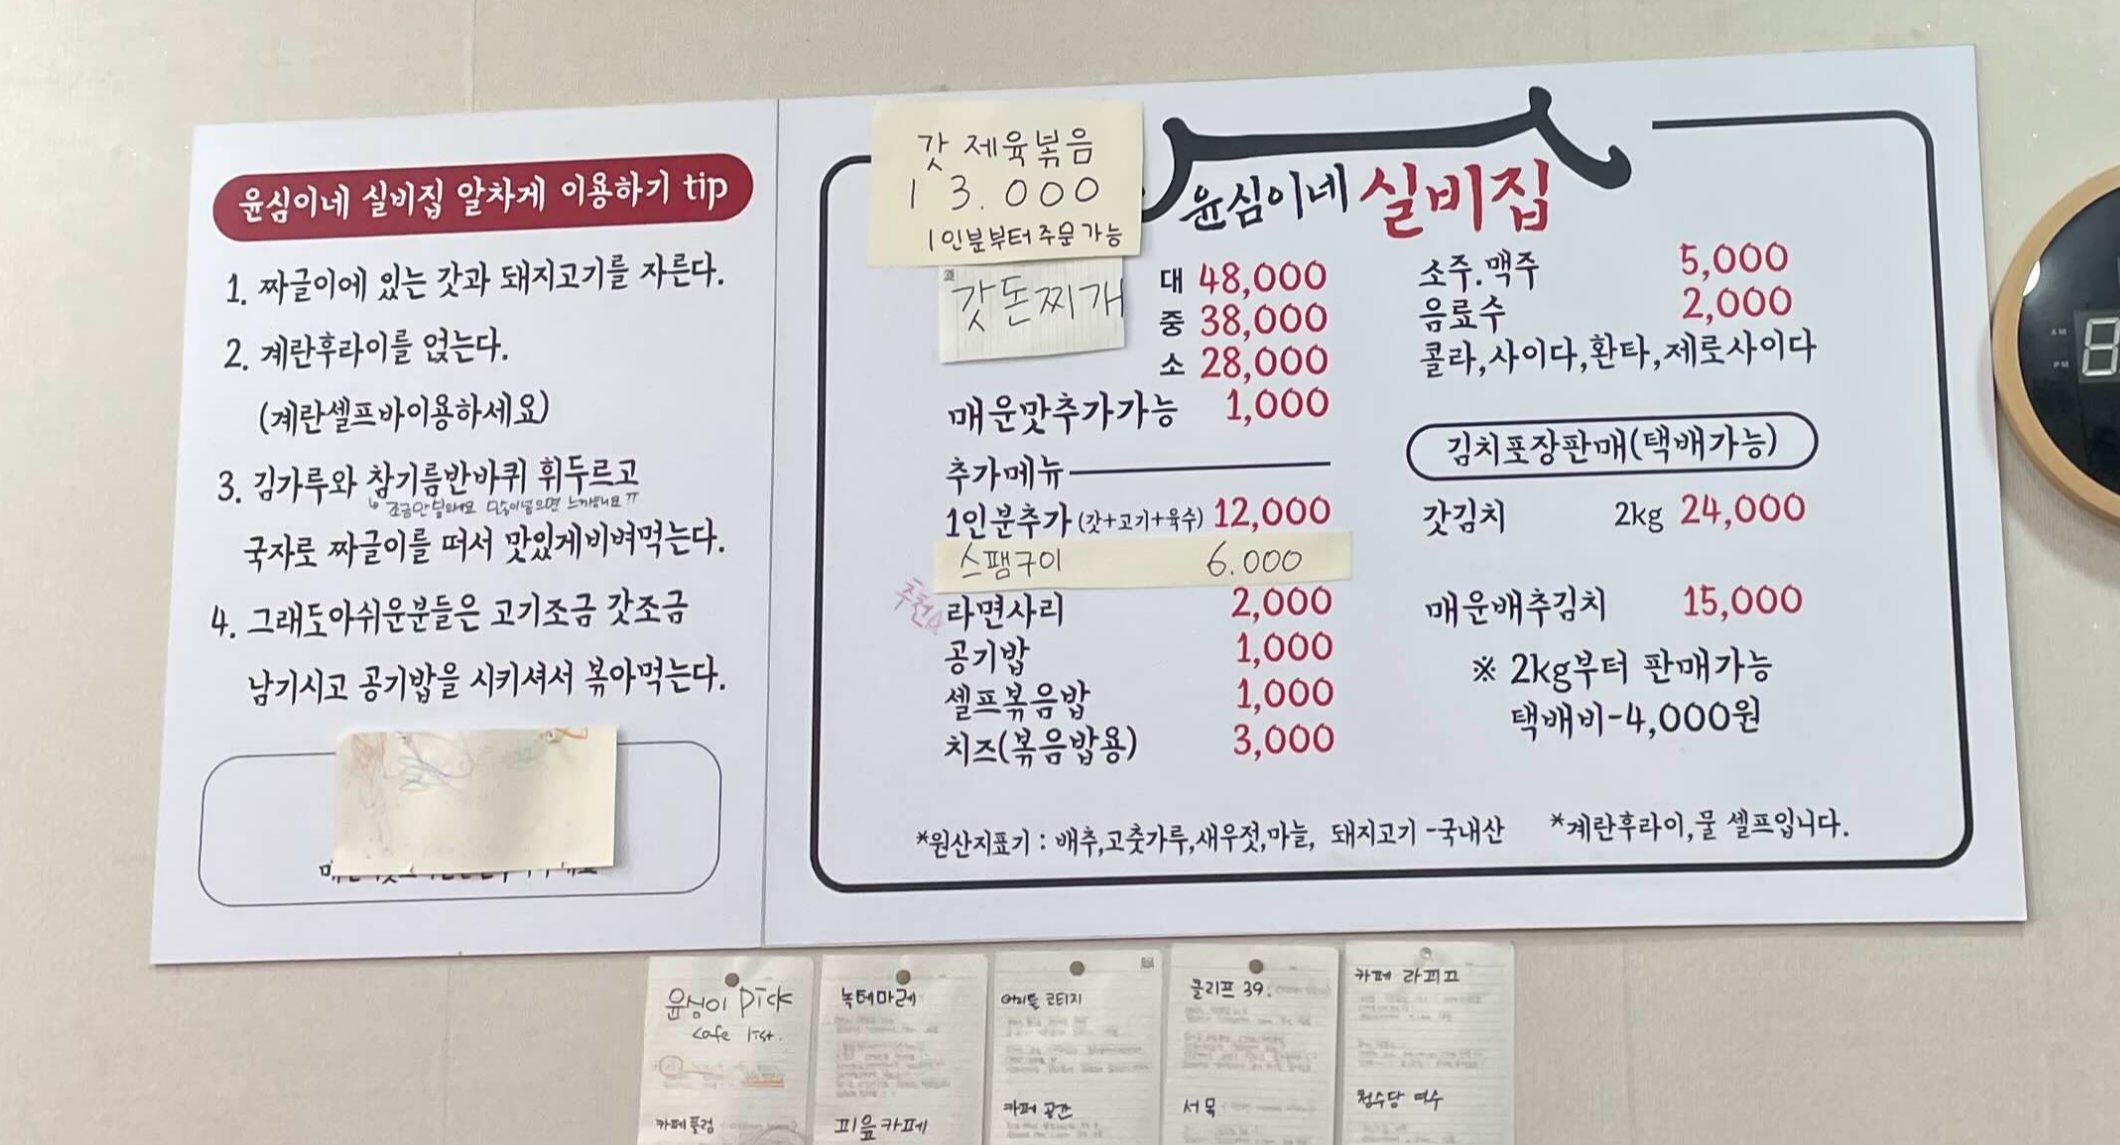 윤심이네 실비집 알차게 이용하기 tip
1. 짜글이에 있는 갓과 돼지고기를 자른다.
2. 계란후라이를 얹는다.
(계란셀프바이용하세요)
3. 김가루와 참기름반바퀴 휘두르고
국자로 짜글이를 떠서 맛있게비벼먹는다.
4. 그래도아쉬운분들은 고기조금 갓조금
남기시고 공기밥을 시키셔서 볶아먹는다.
갓 제육볶음
13.000
1인분부터 주문 가능
윤심이네 실비집
갓돈찌개
대 48,000
중 38,000
소 28,000
매운맛추가가능 1,000
추가메뉴
1인분추가 (갓+고기+육수) 12,000
스팸구이 6.000
추천
라면사리 2,000
공기밥 1,000
셀프볶음밥 1,000
치즈(볶음밥용) 3,000
소주.맥주 5,000
음료수 2,000
콜라,사이다,환타,제로사이다
김치포장판매(택배가능)
갓김치 2kg 24,000
매운배추김치 15,000
※ 2kg부터 판매가능
택배비-4,000원
*원산지표기 : 배추,고춧가루,새우젓,마늘, 돼지고기 -국내산
*계란후라이,물 셀프입니다.
윤심이 pick
cafe list.
카페 플럼
녹테마레
피읖카페
카페 공간
클리프 39.
서목
카페 라피끄
청수당 여수